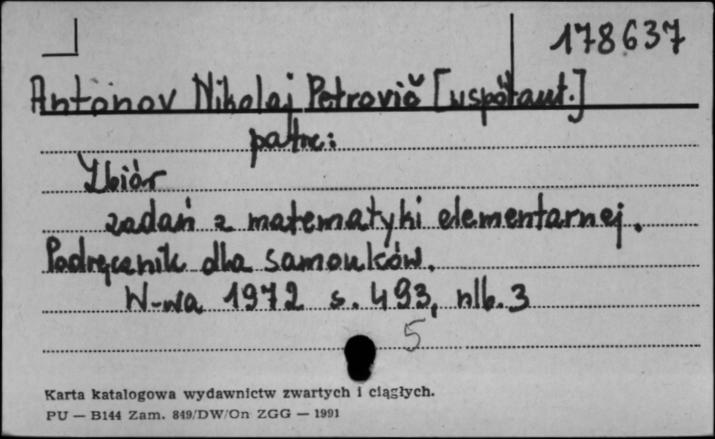 178637
Antonov Nikolaj Petrovič [współaut.]
patrz:
Zbiór
zadań z matematyki elementarnej.
Podręcznik dla samouków.
W-wa 1972 s. 493, nlb. 3
5
Karta katalogowa wydawnictw zwartych i ciągłych.
PU — B144 Zam. 849/DW/On ZGG — 1991